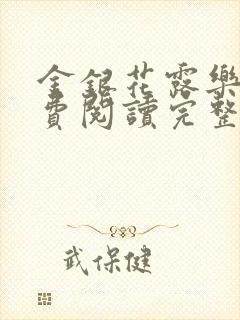 金銀花露樂
費閱讀完整
武保健